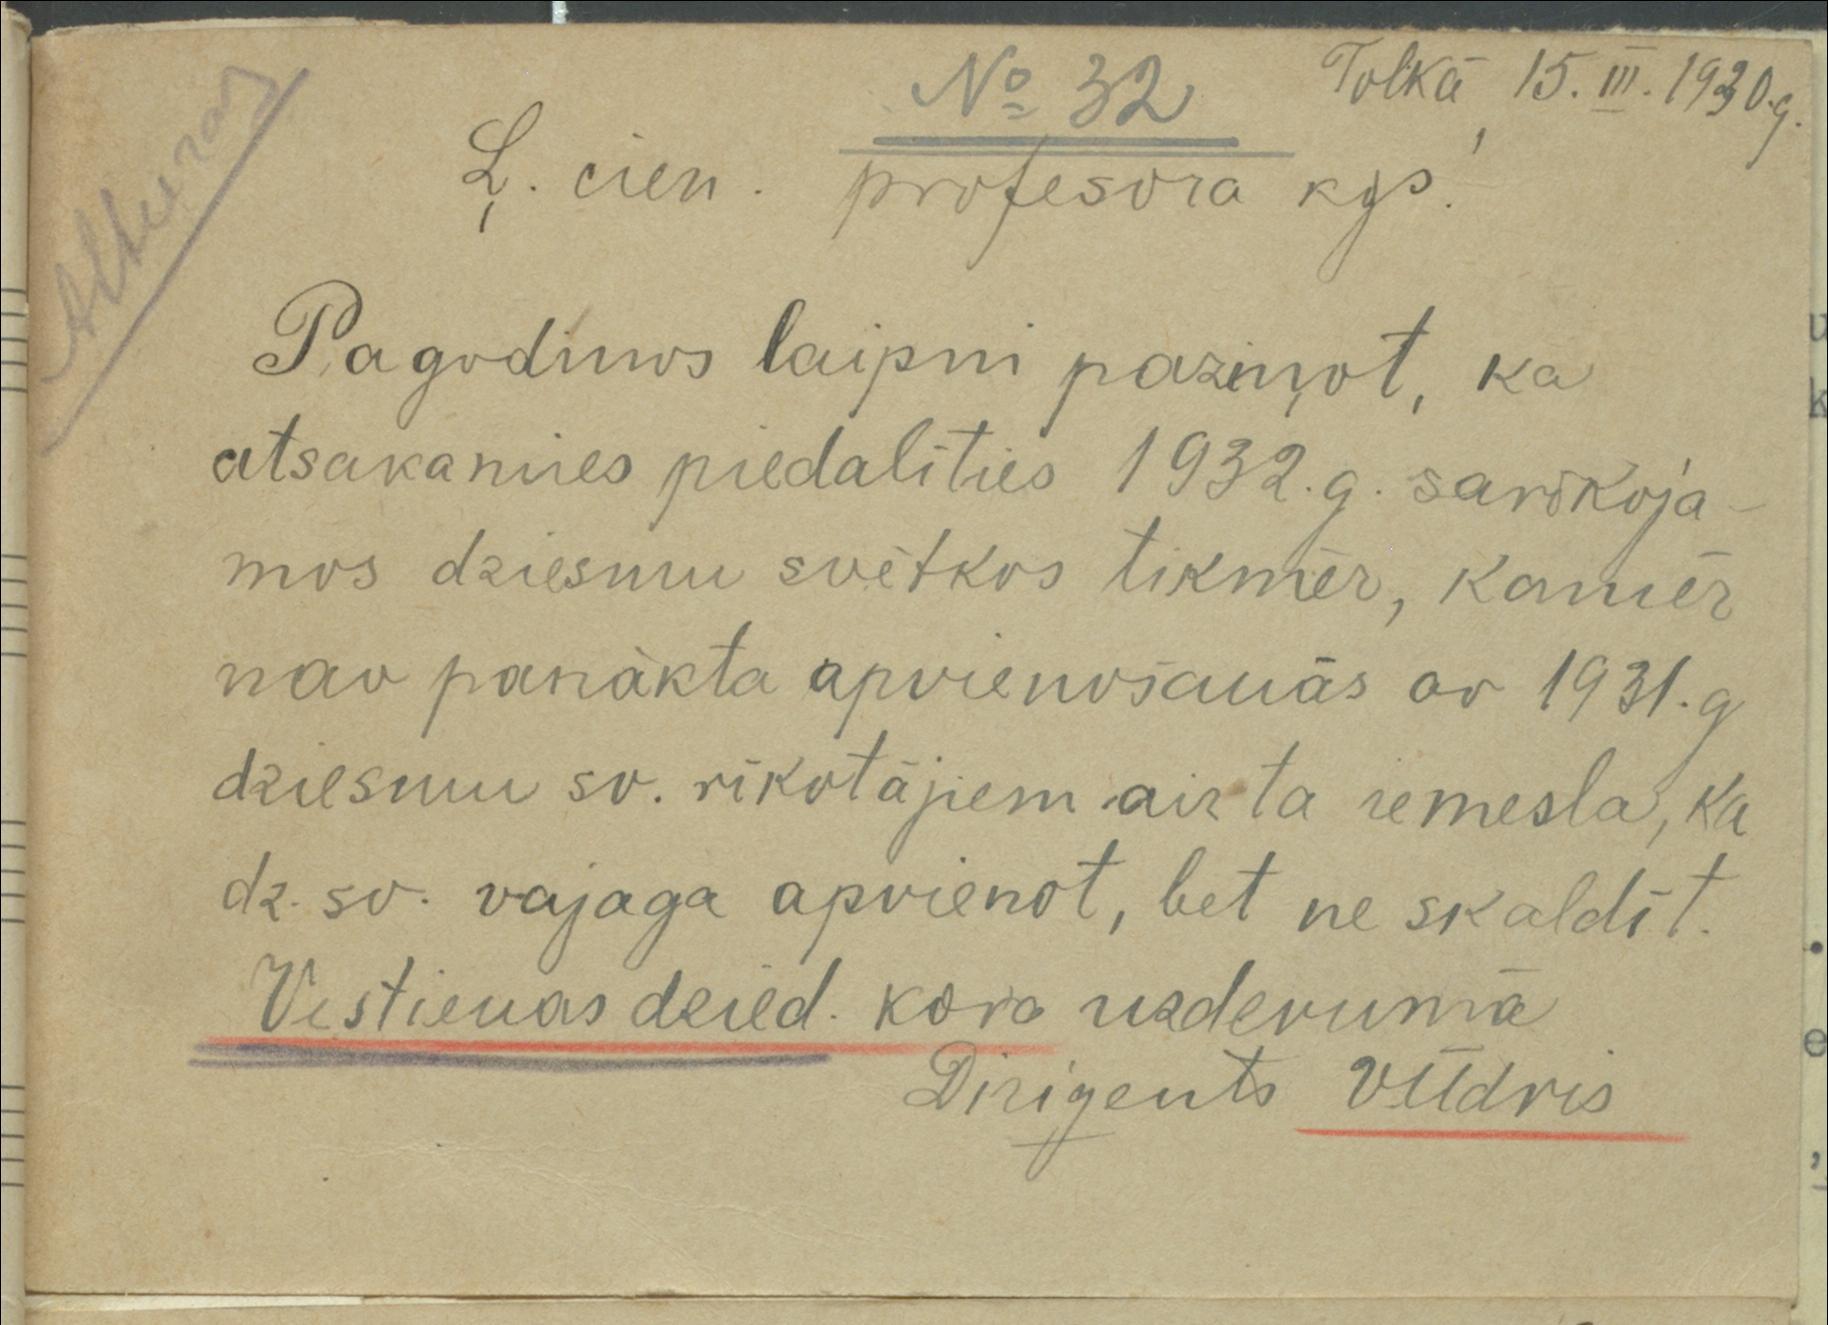 № 32
Tolkā, 15. III. 1930.g.
Ļ. cien. profesora kgs!
Pagodinos laipni paziņot, ka
atsakamies piedalīties 1932. g. sarīkoja-
mos dziesmu svētkos tikmēr, kamēr
nav panākta apvienošanās ar 1931. g
dziesmu sv. rīkotājiem aiz ta iemesla, ka
dz. sv. vajaga apvienot, bet ne skaldīt.
Vestienas dzied. kora uzdevumā
Dirigents Vīdris